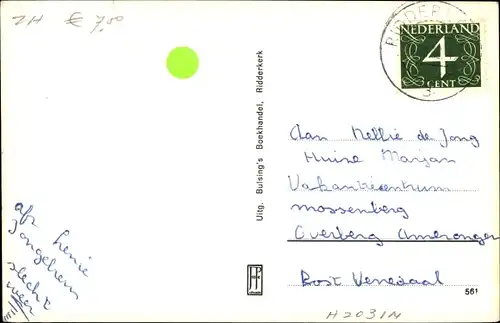 ZH € 7,50
RIDDER
NEDERLAND
4
CENT
3
Aan Nellie de Jong
Huize Marjan
Vakantiecentrum
mossenberg
Overberg Amerongen
Post Venedaal
Uitg. Bulsing's Boekhandel, Ridderkerk
afz Lenie
slecht
weer
JP
561
H2031N